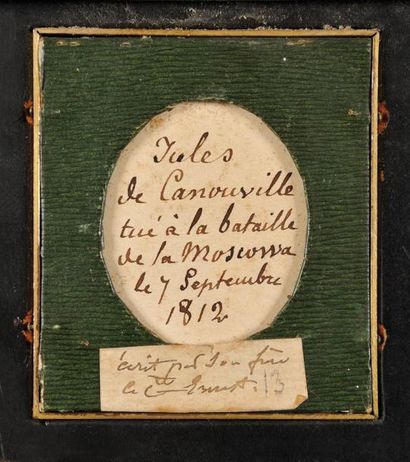 Jules
de Canouville
tué à la bataille
de la Moscowa
le 7 Septembre
1812
écrit par son frère
le Cte Ernest. 13